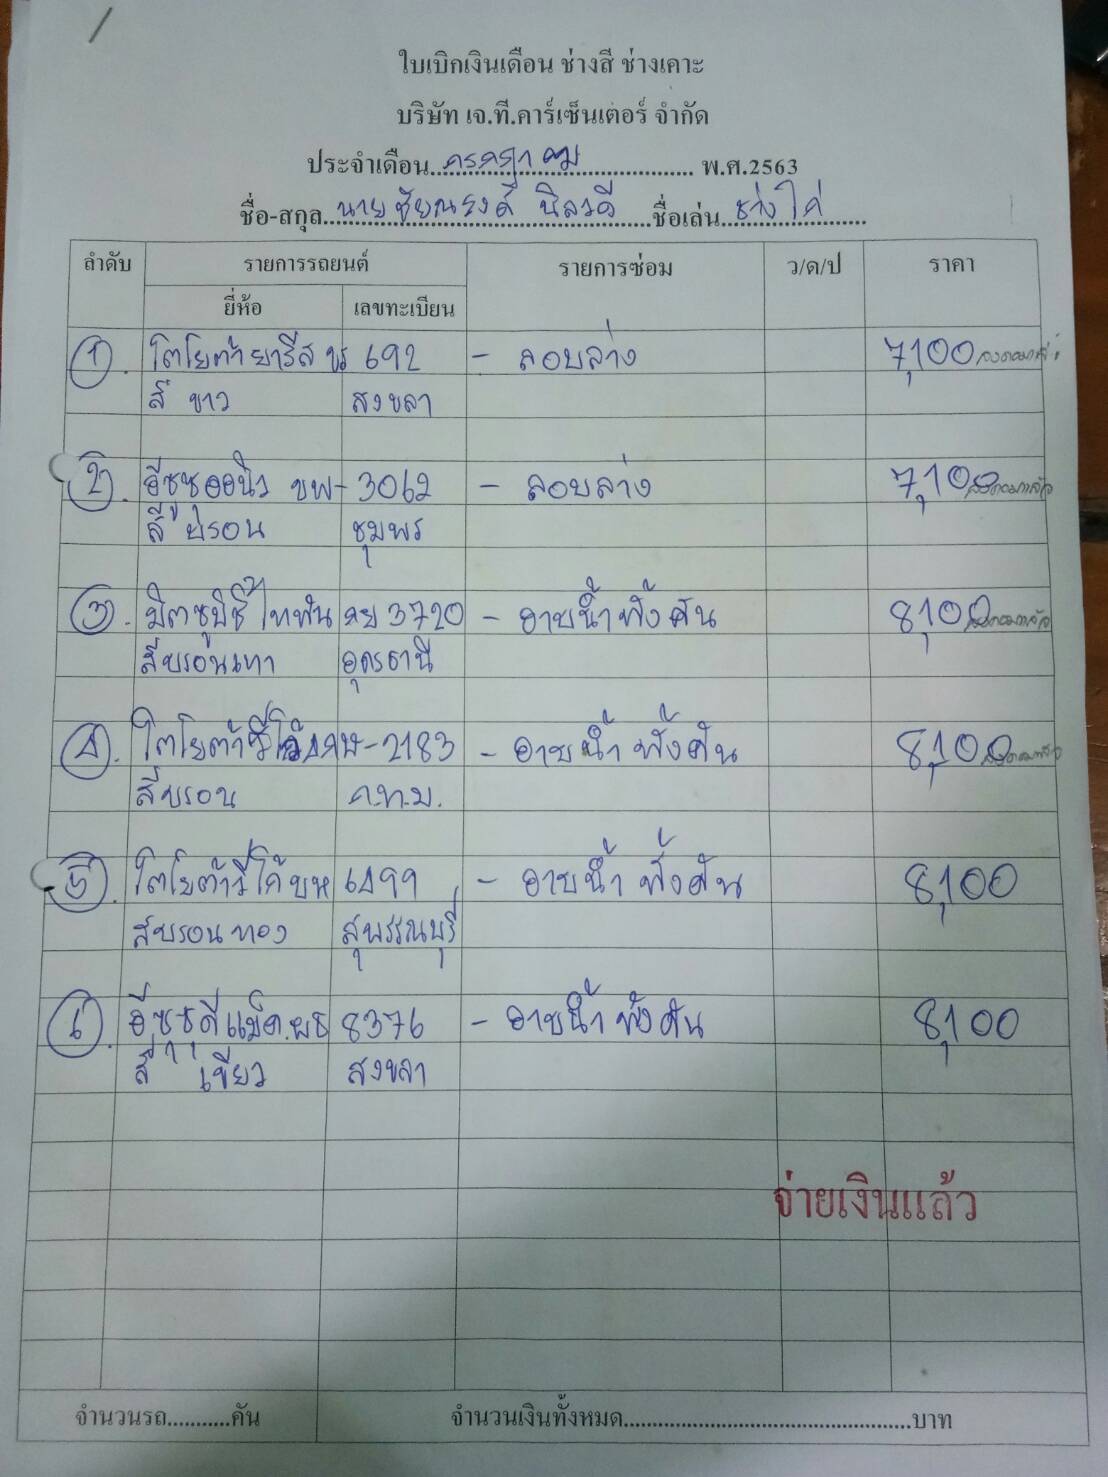 ใบเบิกเงินเดือน ช่างสี ช่างเคาะ
บริษัท เจ.ที.คาร์เซ็นเตอร์ จำกัด
ประจำเดือน กรกฎาคม พ.ศ.2563
ชื่อ-สกุล นายชัยณรงค์ นิลวดี ชื่อเล่น ช่างไก่
ลำดับ รายการรถยนต์ รายการซ่อม ว/ด/ป ราคา
ยี่ห้อ เลขทะเบียน
1. โตโยต้ายารีส ขร 692 - ลอบล่าง 7,100
สี ขาว สงขลา
2. อีซูซุออนิว ขพ-3062 - ลอบล่าง 7,100
สี บรอน ชุมพร
3. มิตซูบิชิไทพัน 3720 - อาบน้ำทั้งคัน 8,100
สีบรอนเทา อุดรธานี
4. โตโยต้าวีโก้ -2183 - อาบน้ำ ทั้งคัน 8,100
สีบรอน ก.ท.ม.
5. โตโยต้าวีโก้ บห 6499 - อาบน้ำ ทั้งคัน 8,100
สีบรอนทอง สุพรรณบุรี
6. อีซูซุดีแม็ค ผธ 8376 - อาบน้ำ ทั้งคัน 8,100
สี เขียว สงขลา
จ่ายเงินแล้ว
จำนวนรถ...........คัน จำนวนเงินทั้งหมด...............................................บาท